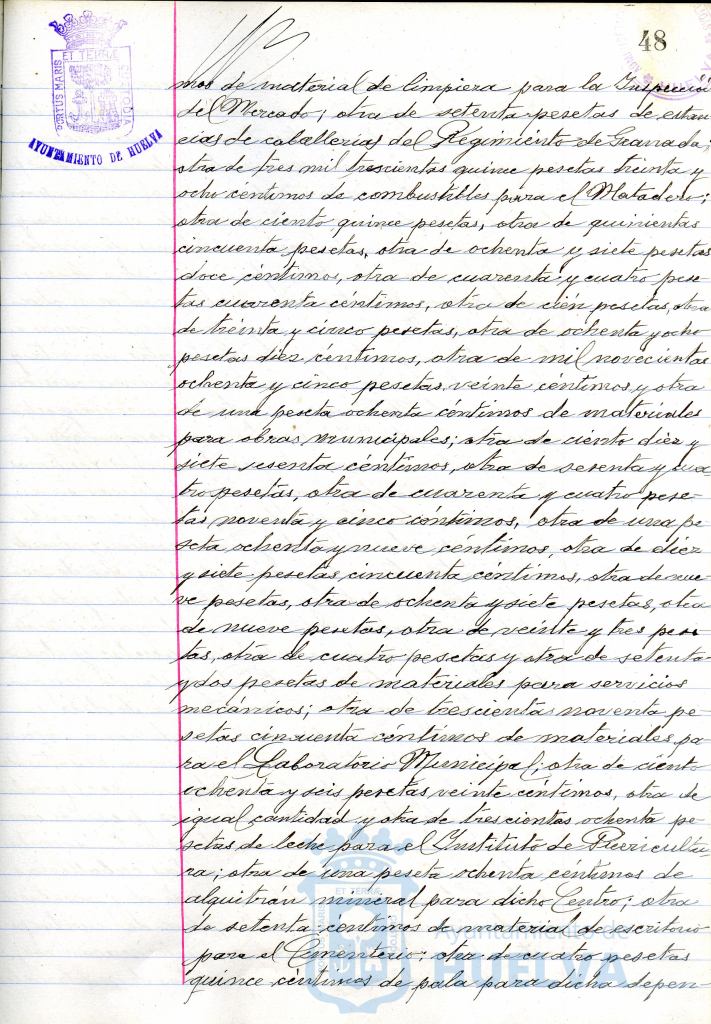 48
PORTUS MARIS
ET TERRÆ
CUSTODIA
AYUNTAMIENTO DE HUELVA
mos de material de limpieza para la Inspección
del Mercado; otra de setenta pesetas de estan-
cias de caballerias del Regimiento de Granada;
otra de tres mil trescientas quince pesetas treinta y
ocho céntimos de combustibles para el Matadero;
otra de ciento quince pesetas, otra de quinientas
cincuenta pesetas, otra de ochenta y siete pesetas
doce céntimos, otra de cuarenta y cuatro pese-
tas cuarenta céntimos, otra de cien pesetas, otra
de treinta y cinco pesetas, otra de ochenta y ocho
pesetas diez céntimos, otra de mil novecientas
ochenta y cinco pesetas veinte céntimos y otra
de una peseta ochenta céntimos de materiales
para obras municipales; otra de ciento diez y
siete sesenta céntimos, otra de sesenta y cua-
tro pesetas, otra de cuarenta y cuatro pese-
tas noventa y cinco céntimos, otra de una pe-
seta ochenta y nueve céntimos, otra de diez
y siete pesetas cincuenta céntimos, otra de nue-
ve pesetas, otra de ochenta y siete pesetas, otra
de nueve pesetas, otra de veinte y tres pese-
tas, otra de cuatro pesetas y otra de setenta
y dos pesetas de materiales para servicios
mecánicos; otra de trescientas noventa pe-
setas cincuenta céntimos de materiales pa-
ra el Laboratorio Municipal; otra de ciento
ochenta y seis pesetas veinte céntimos, otra de
igual cantidad y otra de trescientas ochenta pe-
setas de leche para el Instituto de Puericultu-
ra; otra de una peseta ochenta céntimos de
alquitrán mineral para dicho Centro; otra
de setenta céntimos de material de escritorio
para el Cementerio; otra de cuatro pesetas
quince céntimos de pala para dicha depen-
Ayuntamiento de
HUELVA